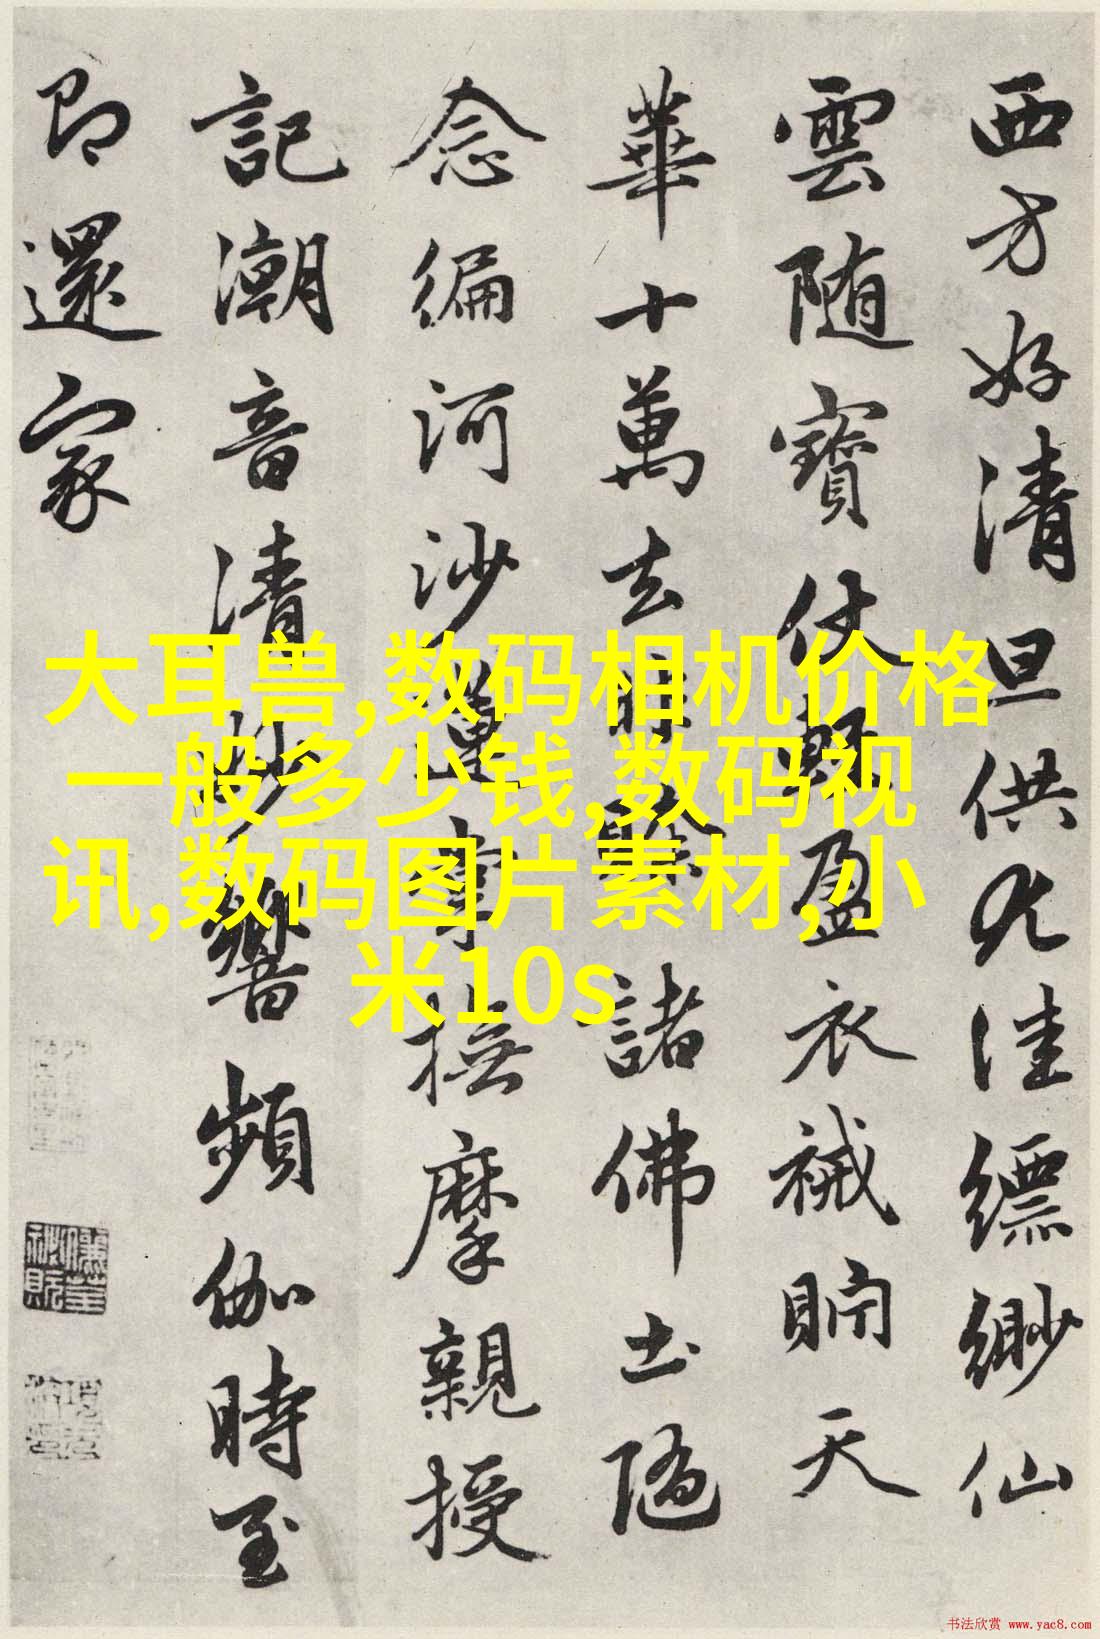 西方好清旦供九洼缥缈仙
雲随寶仗輕盈衣裓貯天
華十萬去時餘諸佛土隨
念编河沙蓮掌撫摩親授
記潮音清妙響頻伽時至
即還家
大耳兽,数码相机价格
一般多少钱,数码视
讯,数码图片素材,小
米10s
书法欣赏 www.yac8.com